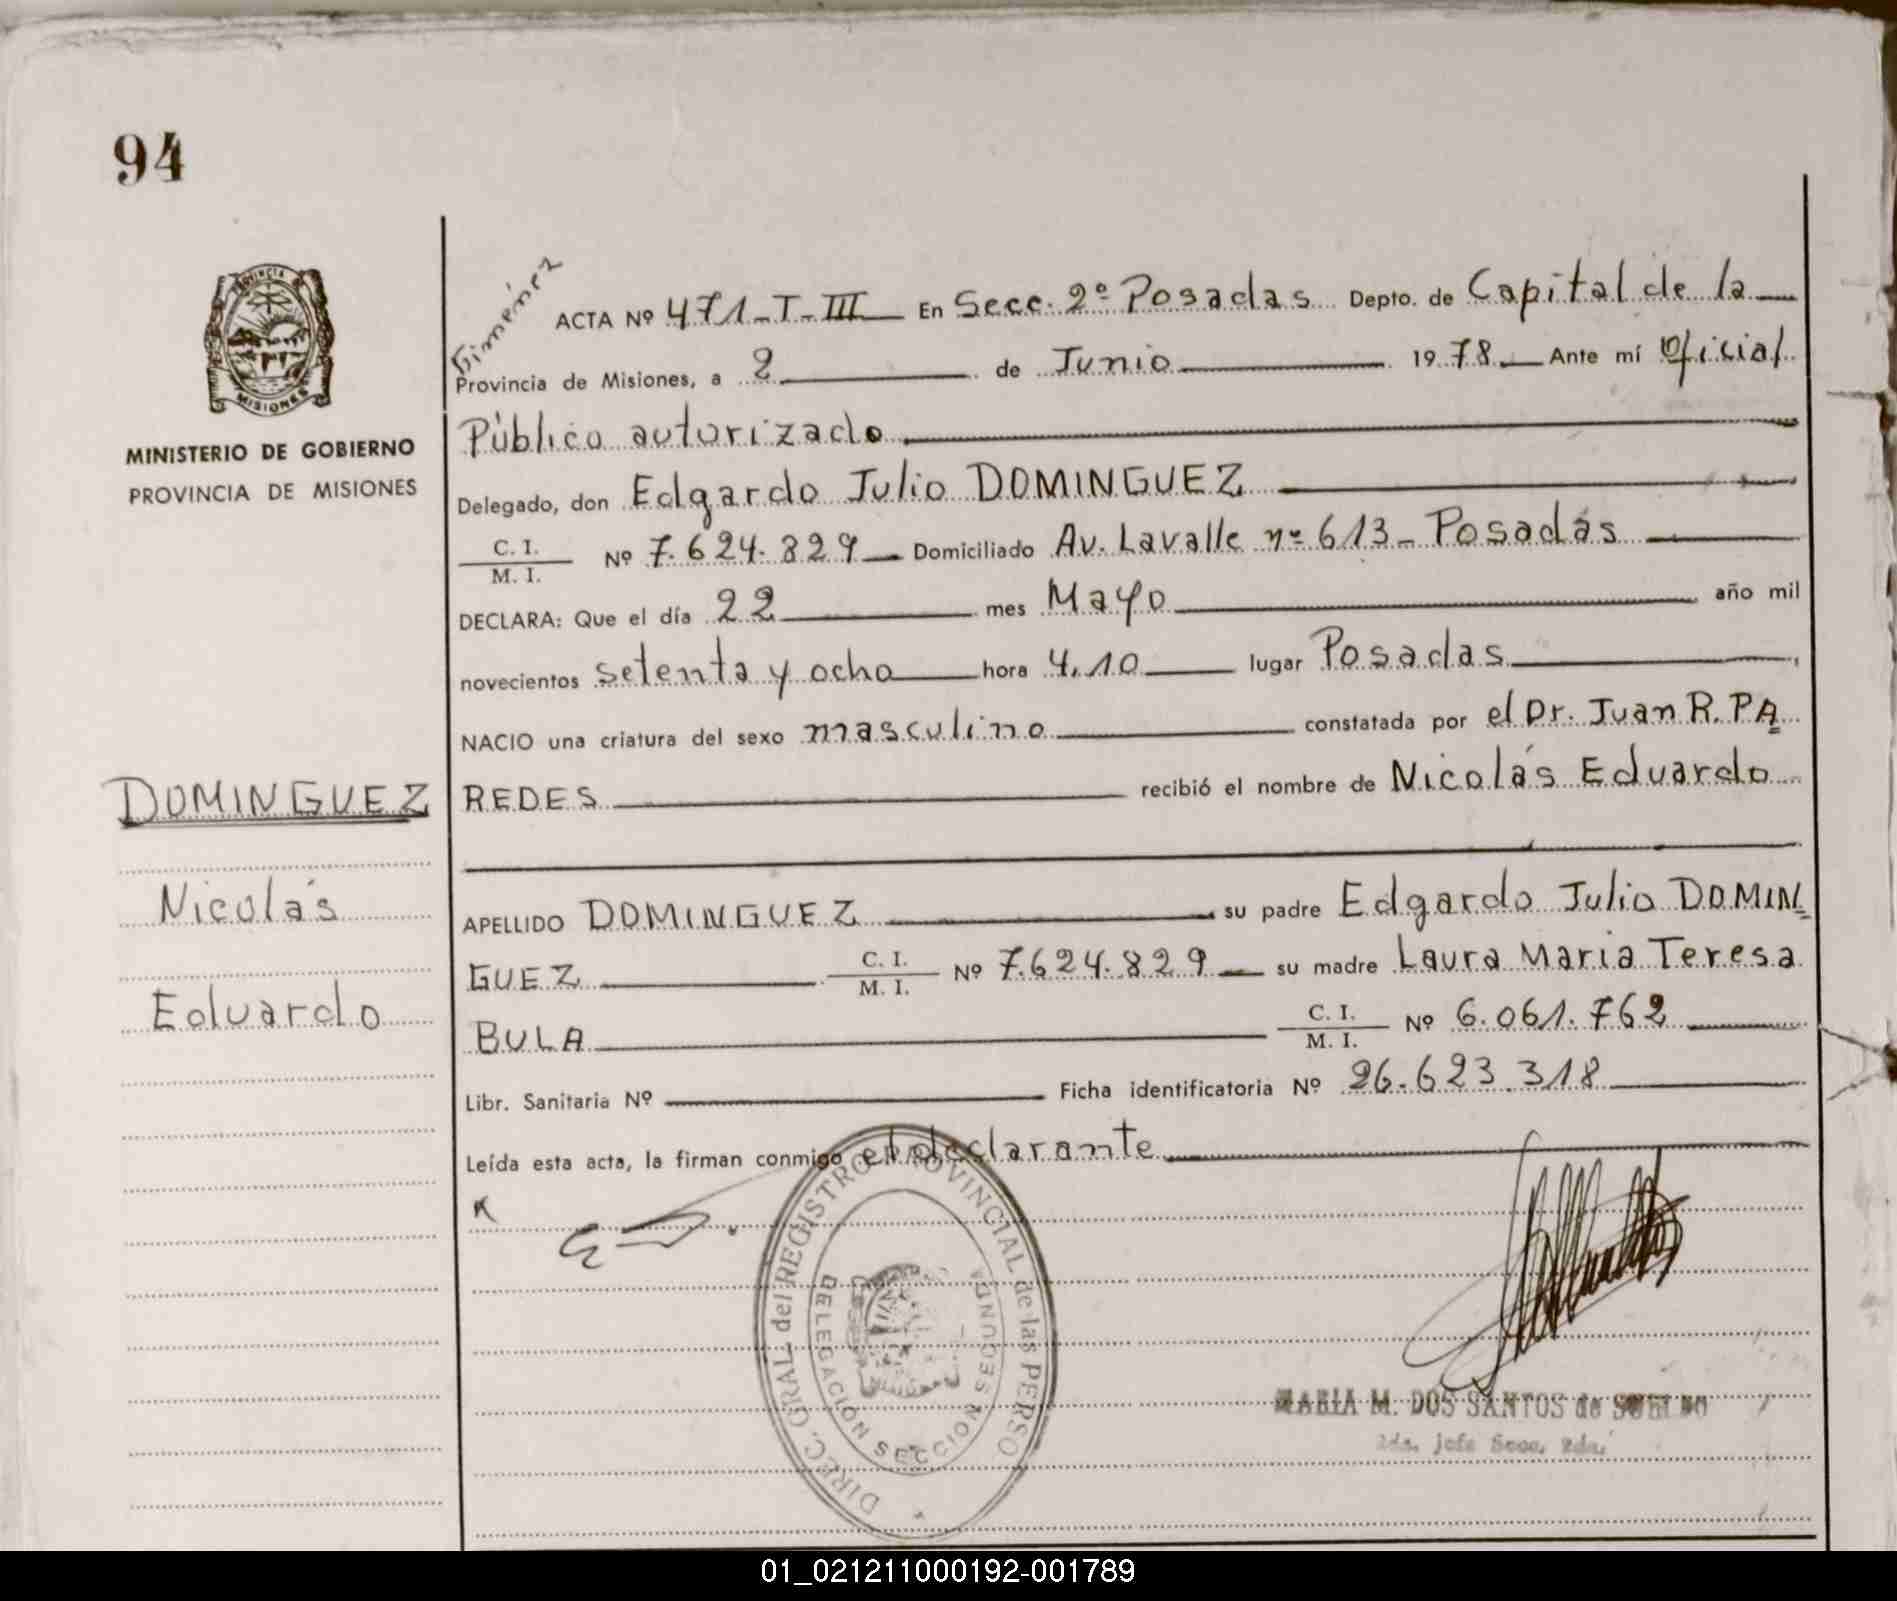 94
PROVINCIA
MISIONES
MINISTERIO DE GOBIERNO
PROVINCIA DE MISIONES
DOMINGUEZ
Nicolás
Eduardo
Giménez
ACTA Nº 471-T-III En Secc. 2º Posadas Depto. de Capital de la
Provincia de Misiones, a 2 de Junio 1978 Ante mí Oficial
Público autorizado
Delegado, don Edgardo Julio DOMINGUEZ
C. I.
M. I. Nº 7.624.829 Domiciliado Av. Lavalle nº 613- Posadas
DECLARA: Que el día 22 mes Mayo año mil
novecientos setenta y ocho hora 4,10 lugar Posadas
NACIO una criatura del sexo masculino constatada por el Dr. Juan R. PA
REDES recibió el nombre de Nicolás Eduardo
APELLIDO DOMINGUEZ su padre Edgardo Julio DOMIN
GUEZ C. I. M. I. Nº 7.624.829 su madre Laura Maria Teresa
BULA C. I. M. I. Nº 6.061.762
Libr. Sanitaria Nº Ficha identificatoria Nº 26.623.318
Leída esta acta, la firman conmigo el declarante
DIREC. GRAL. del REGISTRO PROVINCIAL de las PERSO
DELEGACIÓN SECCION SEGUNDA
MARIA M. DOS SANTOS de
2da. Jefe Secc. 2da.
01_021211000192-001789